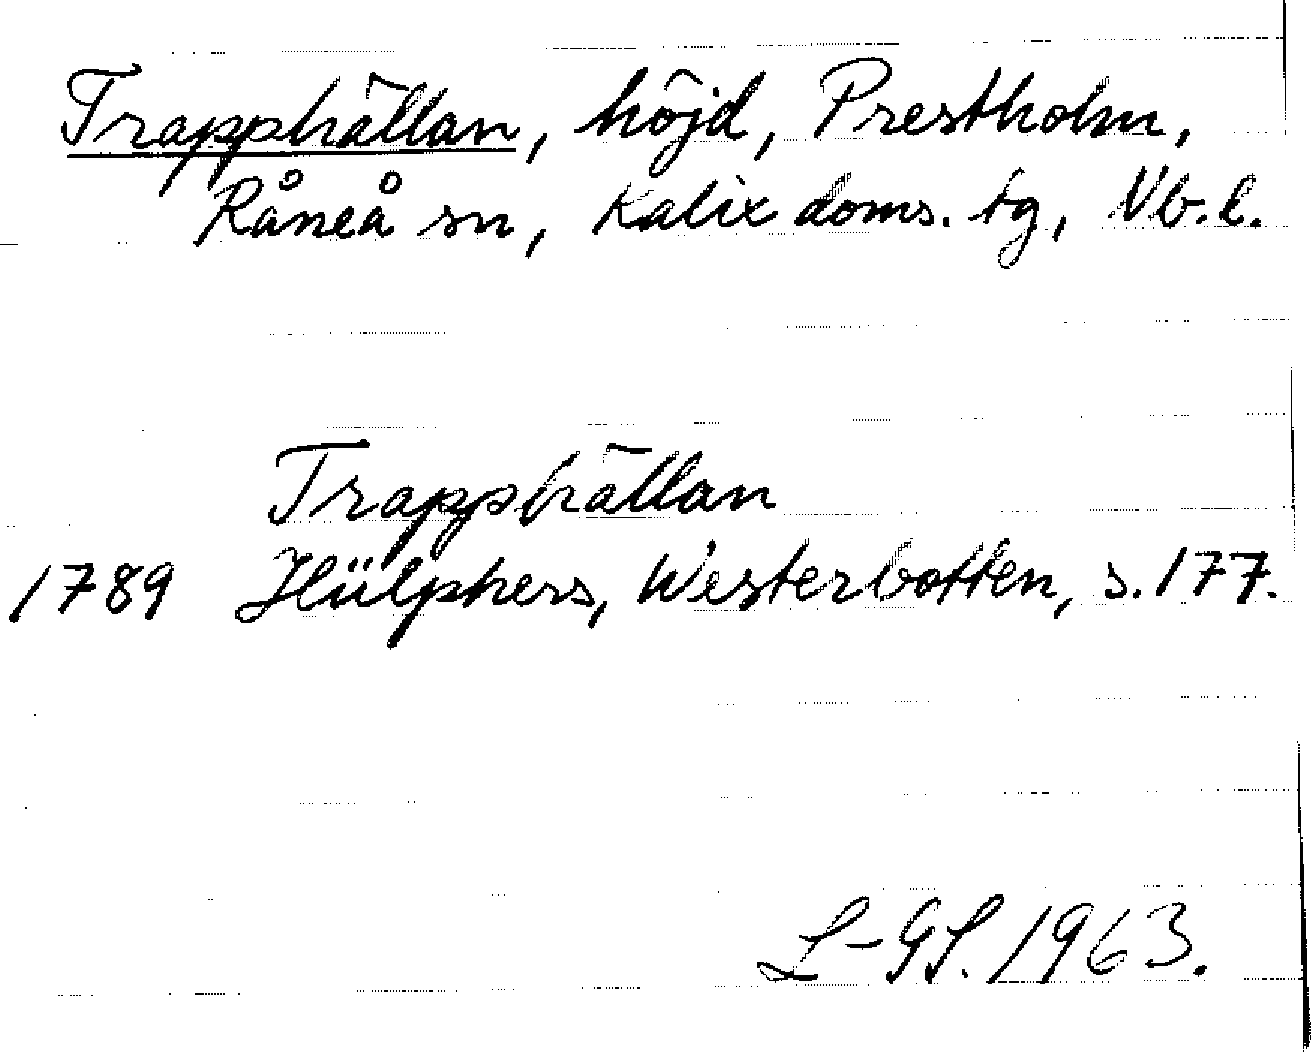 Trapphällan, höjd, Prestholm,
Råneå sn, Kalix doms. tg, Vb. l.
Trapphällan
1789 Hülphers, Westerbotten, s. 177.
L-GS. 1963.